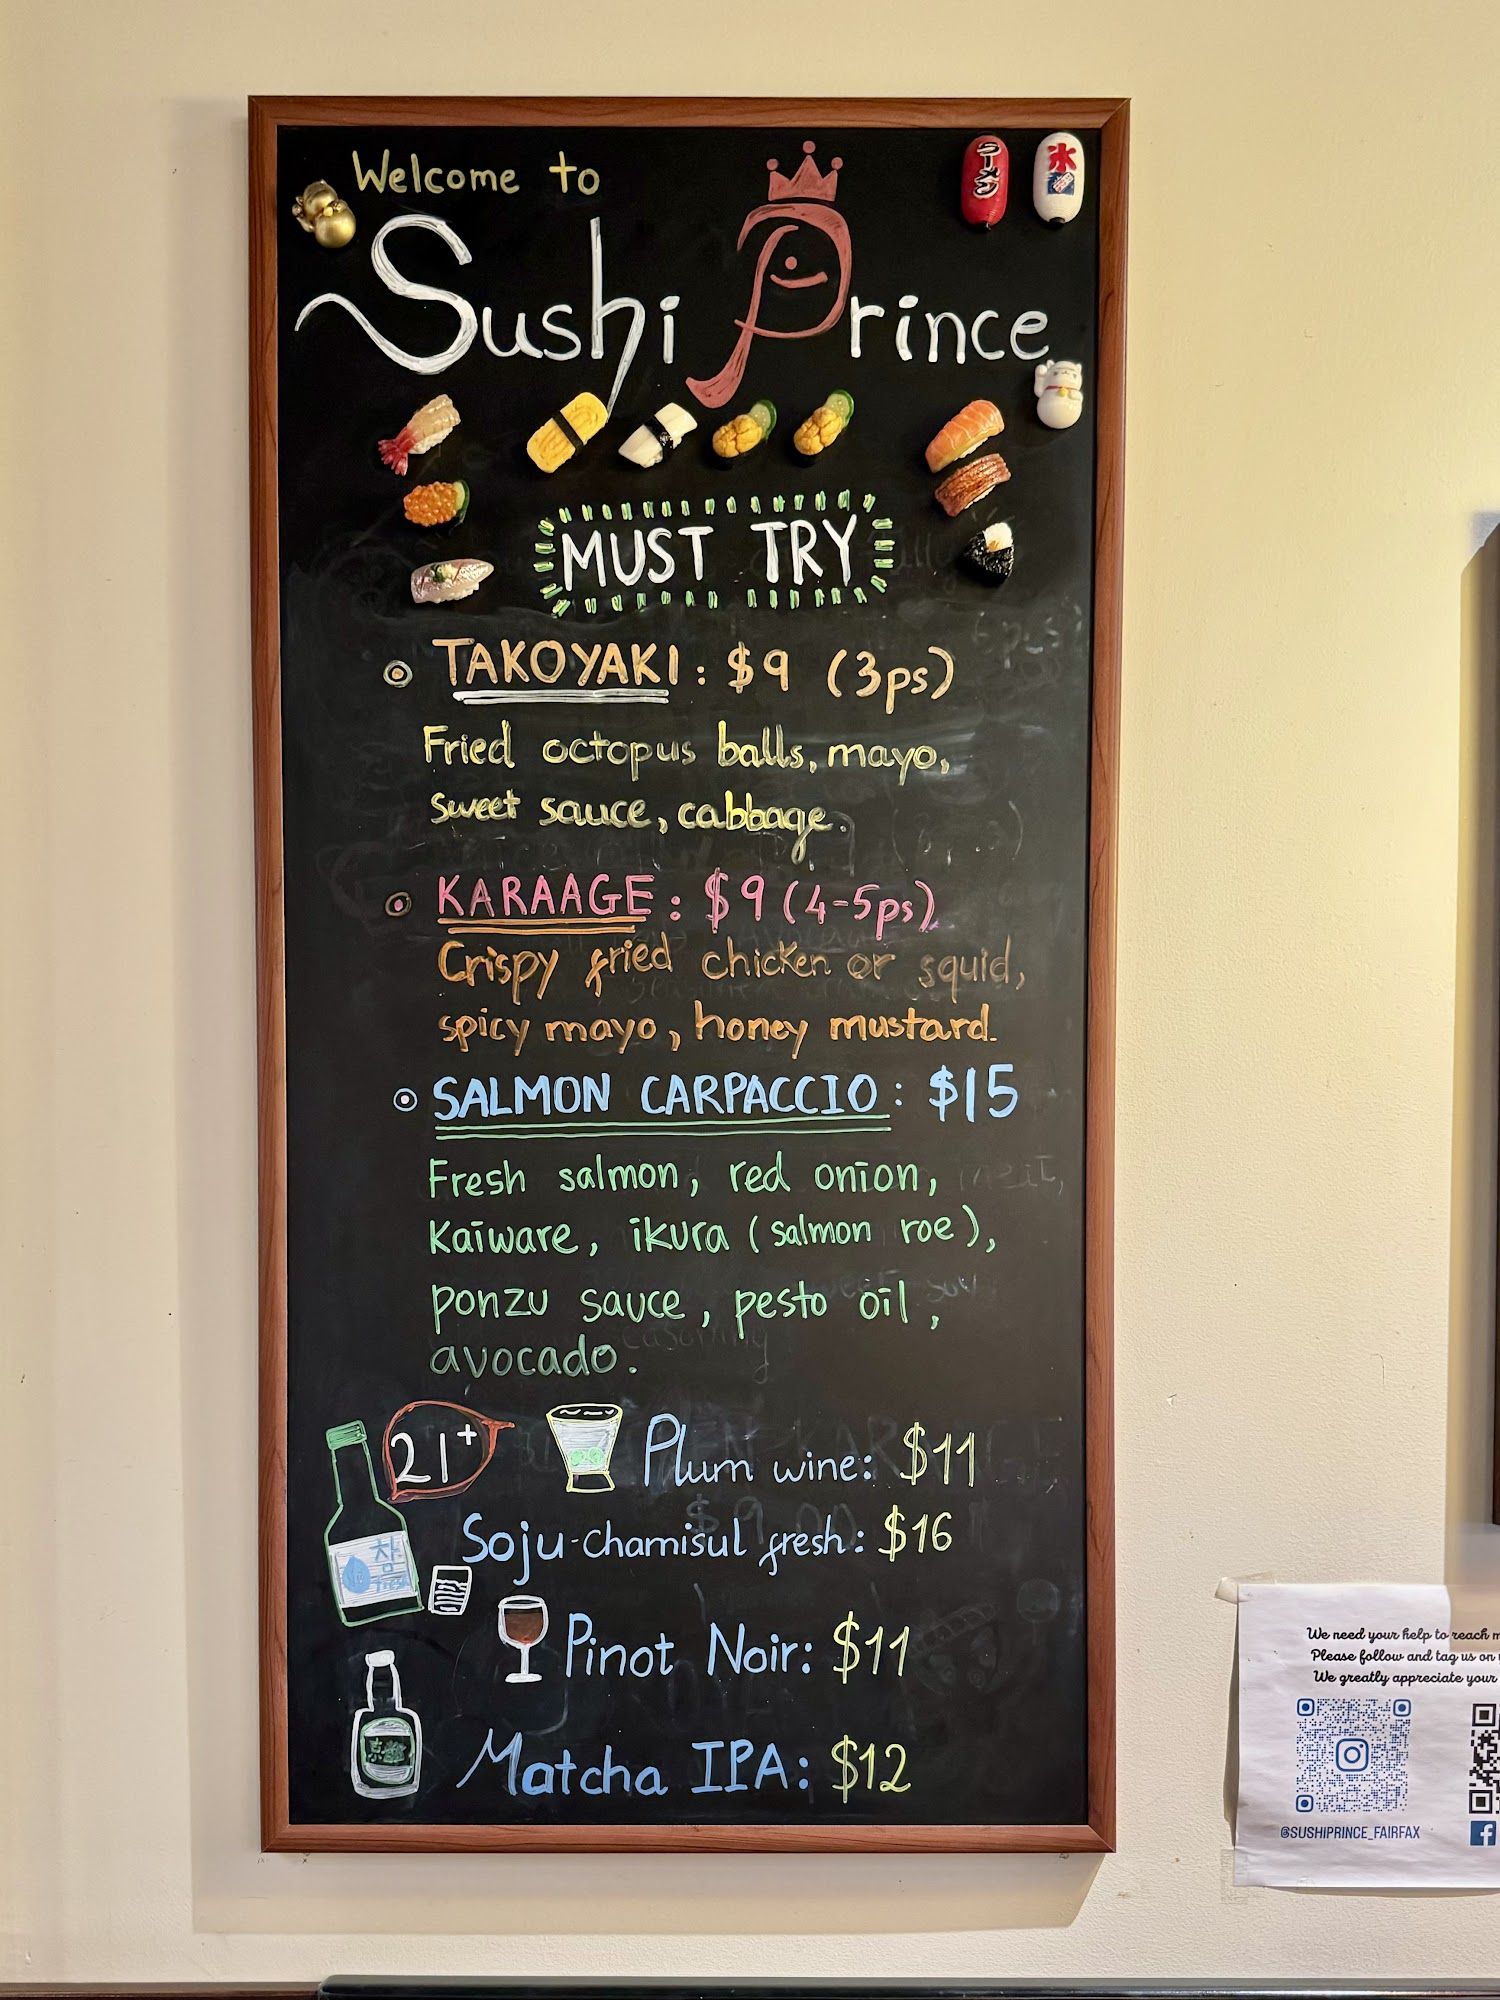 Welcome to
Sushi Prince
ラーメン
氷
MUST TRY
TAKOYAKI: $9 (3ps)
Fried octopus balls, mayo,
sweet sauce, cabbage.
KARAAGE: $9 (4-5ps)
Crispy fried chicken or squid,
spicy mayo, honey mustard.
SALMON CARPACCIO: $15
Fresh salmon, red onion,
Kaiware, ikura (salmon roe),
ponzu sauce, pesto oil,
avocado.
21+
Plum wine: $11
Soju-chamisul fresh: $16
참
fresh
Pinot Noir: $11
Matcha IPA: $12
We need your help to reach
Please follow and tag us on
We greatly appreciate your
@SUSHIPRINCE_FAIRFAX